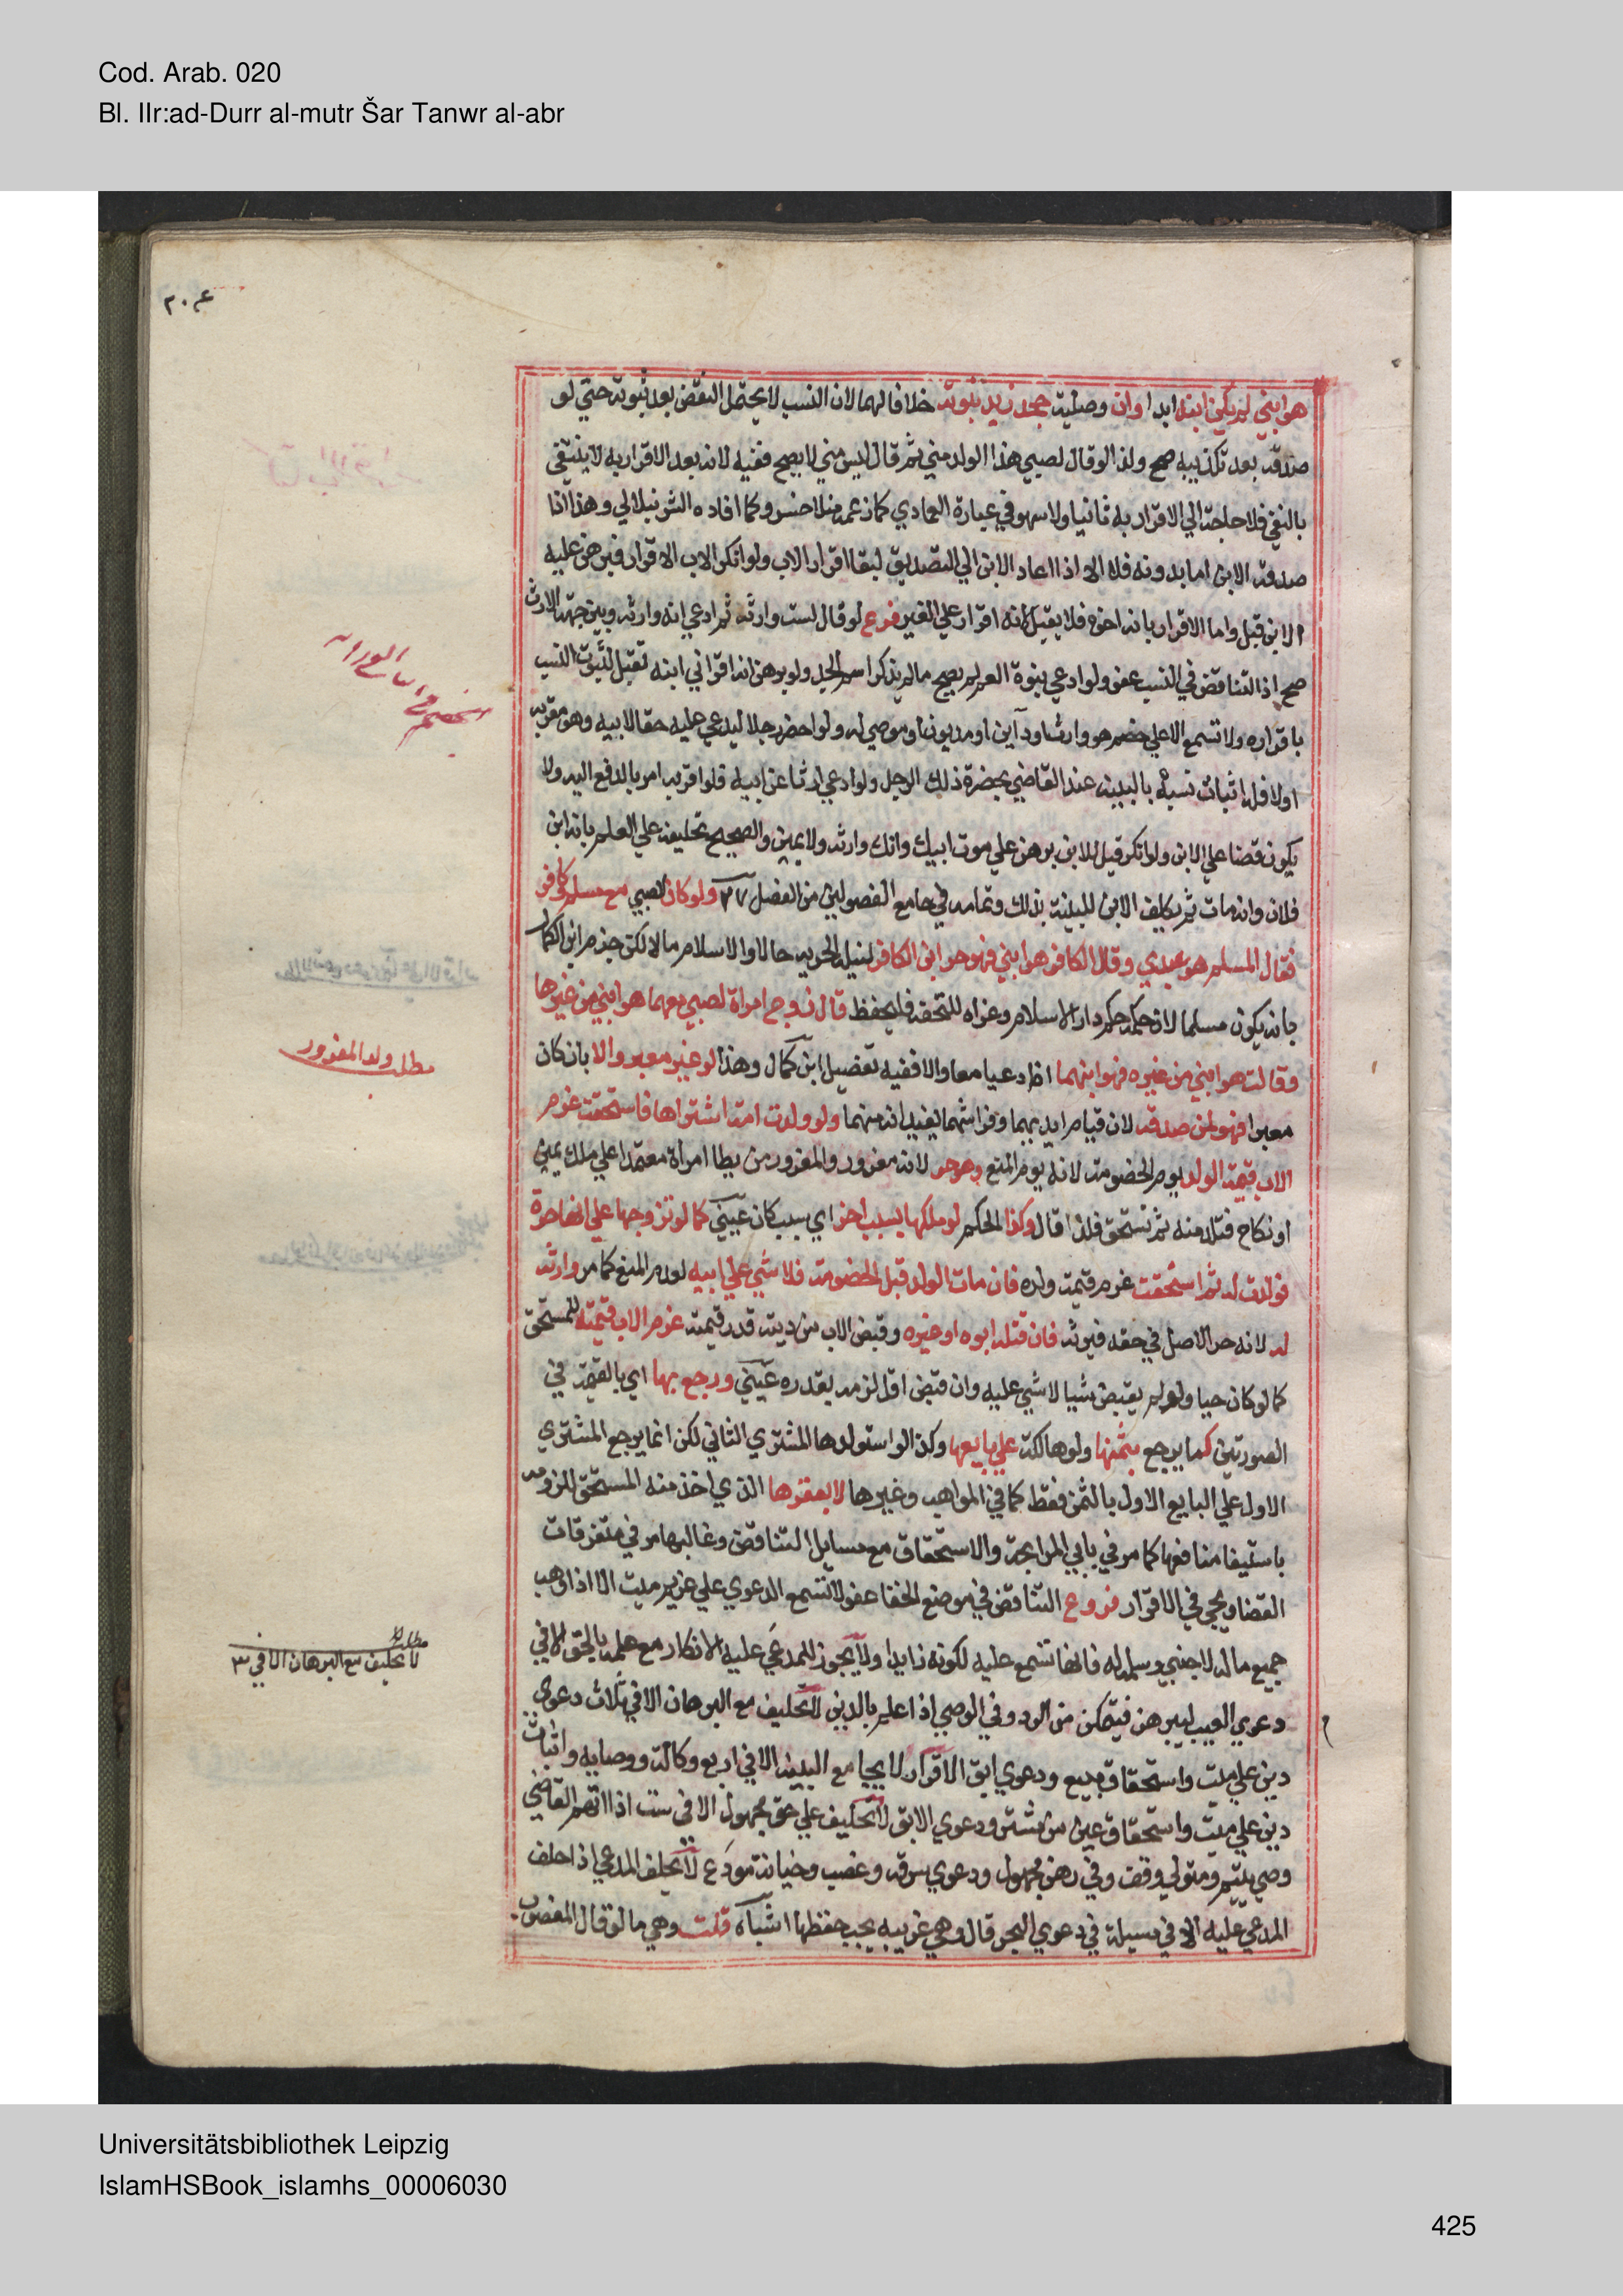 Cod. Arab. 020
Bl. IIr:ad-Durr al-mutr Šar Tanwr al-abr
هو ابني لم يكن ابنه ابدا وان وصلية جحد زيد بنوته خلافا لهما لان النسب لا يحتمل النقض بعد ثبوته حتي لو
صدقه بعد تكذيبه صح ولذا لو قال لصبي هذا الولد مني ثم قال ليس مني لا يصح نفيه لانه بعد الاقرار به لا ينتفي
بالنفي فلا حاجة الي الاقرار به ثانيا ولا سهو في عبارة العمادي كما زعمه منلا خسرو كما افاده الشرنبلالي وهذا اذا
صدقه الابن اما بدونه فلا الا اذا عاد الابن الي التصديق لبقا اقرار الاب ولو انكر الاب الاقرار فبرهن عليه
الابن قبل واما الاقرار بانه اخوه فلا يقبل لانه اقرار علي الغير فروع لو قال لست وارثه ثم ادعي انه وارثه وبين جهة الارث
صح اذ التناقض في النسب عفو ولو ادعي بنوة العم لم يصح ما لم يذكر اسم الجد ولو برهن انه اقر اني ابنه تقبل لثبوت النسب
باقراره ولا تسمع الا علي خصم هو وارث او داين او مديون او موصي له ولو احضر رجلا ليدعي عليه حقا لابيه وهو مقر به
او لا فله اثبات نسبه بالبينة عند القاضي بحضرة ذلك الرجل ولو ادعي ارثا عن ابيه فلو اقر به امر بالدفع اليه ولا
يكون قضا علي الابن ولو انكر قيل للابن برهن علي موت ابيك وانك وارثه ولا يمين والصحيح تحليفه علي العلم بانه ابن
فلان وانه مات ثم يكلف الابن للبينة بذلك وتمامه في جامع الفصولين من الفصل ٢٧ ولو كان الصبي مع مسلم وكافر
فقال المسلم هو عبدي وقال الكافر هو ابني فهو حر ابن الكافر لنيله الحرية حالا والاسلام مالا لكن جزم ابن الكمال
بانه يكون مسلما لان حكمه حكم دار الاسلام وعزاه للتحفة فليحفظ قال زوج امراة لصبي معهما هو ابني من غيرها
وقالت هو ابني من غيره فهو ابنهما اذا ادعيا معا والا ففيه تفصيل ابن كمال وهذا لو غير معبر والا بان كان
معبرا فهو لمن صدقه لان قيام ايديهما وفراشهما يفيد انه منهما ولو ولدت امة اشتراها فاستحقت غرم
الاب قيمة الولد يوم الخصومة لانه يوم المنع وهو حر لانه مغرور والمغرور من يطا امراة معتمدا علي ملك يمين
او نكاح فتلد منه ثم تستحق فلذا قال وكذا الحكم لو ملكها بسبب اخر اي سبب كان عيني كما لو تزوجها علي انها حرة
فولدت له ثم استحقت غرم قيمة ولده فان مات الولد قبل الخصومة فلا شي علي ابيه لعدم المنع كما مر وارثه
له لانه حر الاصل في حقه فيرثه فان قتله ابوه او غيره وقبض الاب من ديته قدر قيمته غرم الاب قيمته للمستحق
كما لو كان حيا ولو لم يقبض شيا لا شي عليه وان قبض اقل لزمه بقدره عيني ورجع بها اي بالقيمة في
الصورتين كما يرجع بثمنها ولو هالكة علي بايعها وكذا لو استولدها المشتري الثاني لكن انما يرجع المشتري
الاول علي البايع الاول بالثمن فقط كما في المواهب وغيرها لا بعقرها الذي اخذ منه المستحق للزومه
باستيفا منافعها كما مر في بابي المرابحة والاستحقاق مع مسايل التناقض وغالبها مر في متفرقات
القضا ويجي في الاقرار فروع التناقض في موضع الخفا عفو لا تسمع الدعوي علي غريم ميت الا اذا وهب
جميع ماله لاجنبي وسلمه له فانها تسمع عليه لكونه زايدا ولا يجوز للمدعي عليه الانكار مع علمه بالحق الا في
دعوي العيب ليبرهن فيتمكن من الرد وفي الوصي اذا علم بالدين لا تحليف مع البرهان الا في ثلاث دعوي
دين علي ميت واستحقاق مبيع ودعوي ابق الاقرار لا يجامع البينة الا في اربع وكالة ووصايه واثبات
دين علي ميت واستحقاق عين من مشتر ودعوي الابق لا تحليف علي حق مجهول الا في ست اذا اتهم القاضي
وصي يتيم ومتولي وقف وفي رهن مجهول ودعوي سرقه وغصب وخيانة مودع لا يحلف المدعي اذا حلف
المدعي عليه الا في مسيلة في دعوي البحر قال وهي غريبه يجب حفظها اشباه قلت وهي ما لو قال المغصوب
مطلب ولد المغرور
مطلب
لا تحليف مع البرهان الا في ٣
Universitätsbibliothek Leipzig
IslamHSBook_islamhs_00006030
425